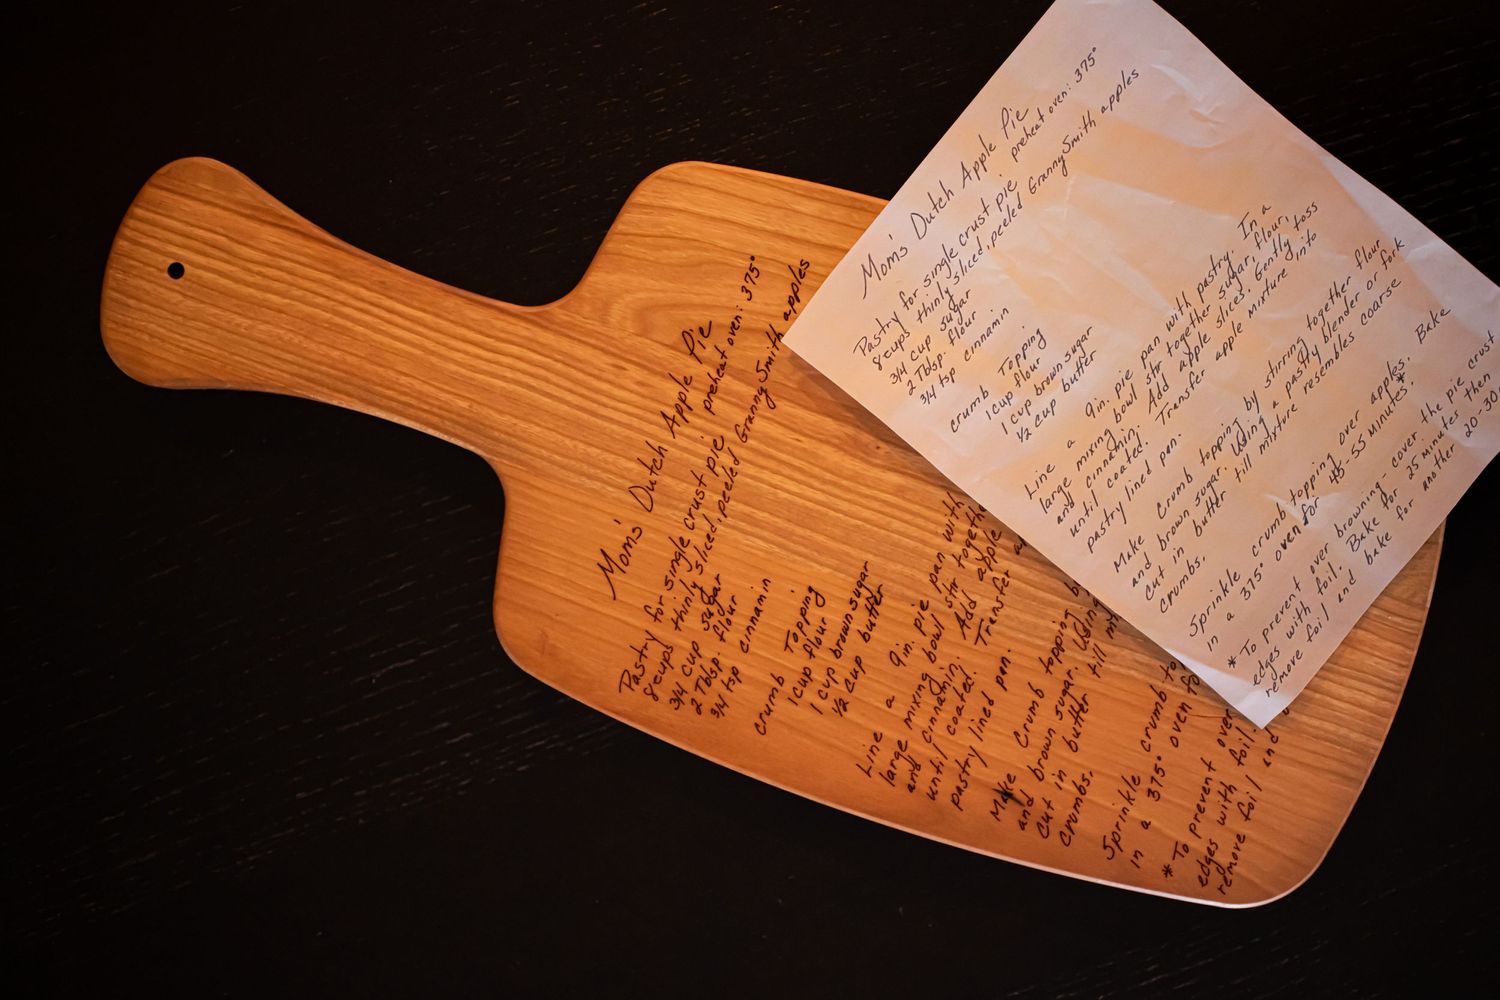 Mom's Dutch Apple Pie
Pastry for single crust pie preheat oven: 375°
8 cups thinly sliced, peeled Granny Smith apples
3/4 cup sugar
2 Tblsp. flour
3/4 tsp cinnamin
crumb Topping
1 cup flour
1 cup brown sugar
1/2 cup butter
Line a 9in. pie pan with pastry. In a
large mixing bowl stir together sugar, flour,
and cinnamin. Add apple slices. Gently toss
until coated. Transfer apple mixture into
pastry lined pan.
Make crumb topping by stirring together flour
and brown sugar. Using a pastry blender or fork
cut in butter till mixture resembles coarse
crumbs.
Sprinkle crumb topping over apples. Bake
in a 375° oven for 45-55 minutes.*
* To prevent over browning - cover the pie crust
edges with foil. Bake for 25 minutes then
remove foil and bake for another 20-30
Mom's Dutch Apple Pie
Pastry for single crust pie preheat oven: 375°
8 cups thinly sliced, peeled Granny Smith apples
3/4 cup sugar
2 Tblsp. flour
3/4 tsp cinnamin
crumb Topping
1 cup flour
1 cup brown sugar
1/2 cup butter
Line a 9in. pie pan with
large mixing bowl stir together
and cinnamin. Add apple
until coated. Transfer
pastry lined pan.
Make crumb topping
and brown sugar. Using
cut in butter till
crumbs.
Sprinkle crumb
in a 375° oven
* To prevent over
edges with foil.
remove foil and